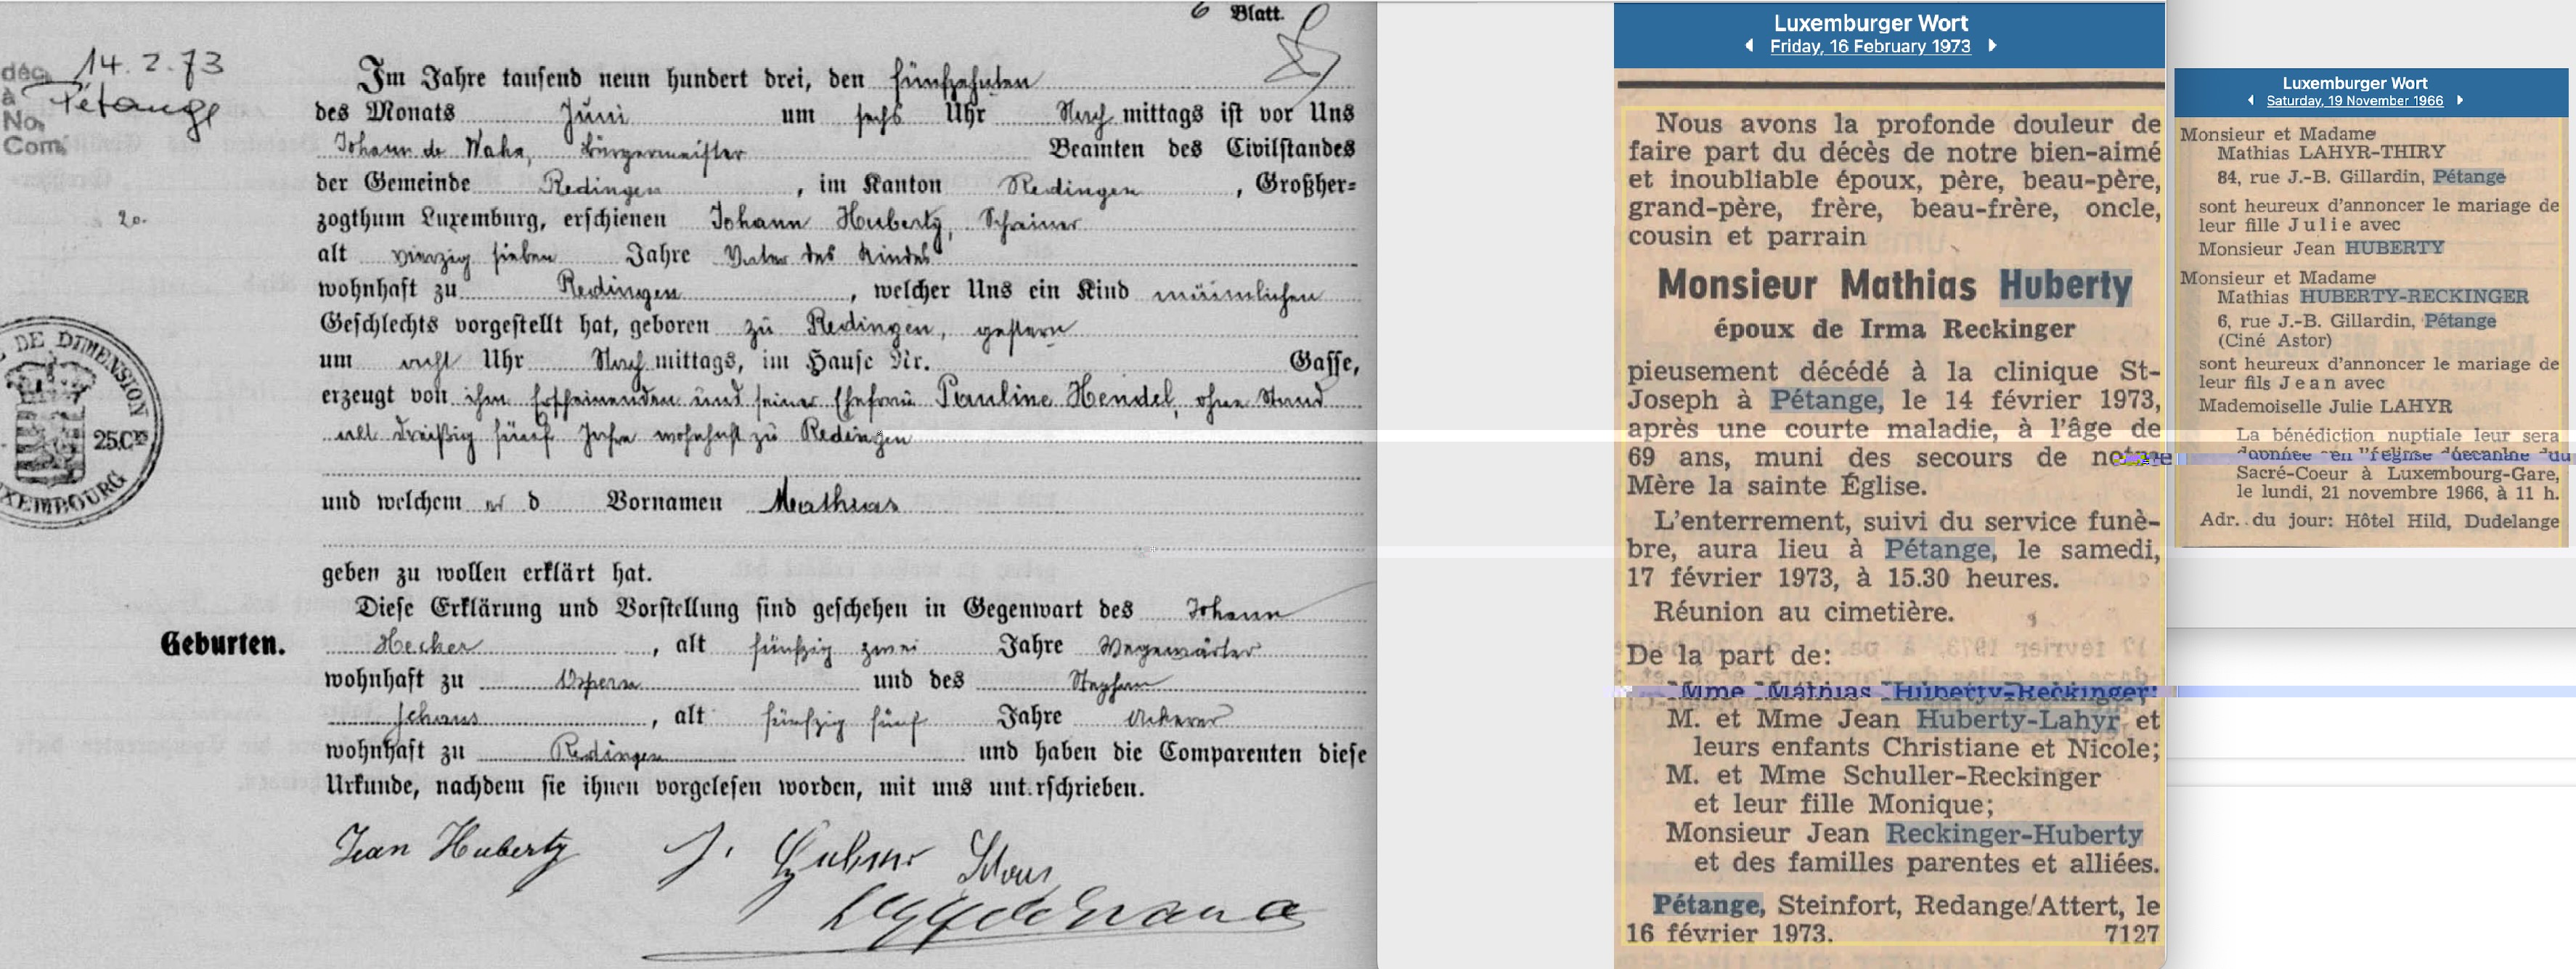 6 Blatt.
14.2.73
déc.
à Pétange
No.
Com.
20.
Im Jahre tausend neun hundert drei, den fünfzehnten
des Monats Juni um sechs Uhr Nachmittags ist vor Uns
Johann de Waha, Bürgermeister Beamten des Civilstandes
der Gemeinde Redingen, im Kanton Redingen, Großher=
zogthum Luxemburg, erschienen Johann Huberty, Schreiner
alt vierzig sieben Jahre Vater des Kindes
wohnhaft zu Redingen, welcher Uns ein Kind männlichen
Geschlechts vorgestellt hat, geboren zu Redingen, gestern
um acht Uhr Nachmittags, im Hause Nr. Gasse,
erzeugt von ihm Erscheinenden und seiner Ehefrau Pauline Hendel, ohne Stand
alt dreißig fünf Jahre wohnhaft zu Redingen
und welchem er d Vornamen Mathias
geben zu wollen erklärt hat.
Diese Erklärung und Vorstellung sind geschehen in Gegenwart des Johann
Hecker, alt fünfzig zwei Jahre Wegewärter
wohnhaft zu Ospern und des Stephan
Schaus, alt fünfzig fünf Jahre Ackerer
wohnhaft zu Redingen und haben die Comparenten diese
Urkunde, nachdem sie ihnen vorgelesen worden, mit uns unt.rschrieben.
Geburten.
DE DIMENSION
25.CES
LUXEMBOURG
Jean Huberty
Luxemburger Wort
Friday, 16 February 1973
Nous avons la profonde douleur de
faire part du décès de notre bien-aimé
et inoubliable époux, père, beau-père,
grand-père, frère, beau-frère, oncle,
cousin et parrain
Monsieur Mathias Huberty
époux de Irma Reckinger
pieusement décédé à la clinique St-
Joseph à Pétange, le 14 février 1973,
après une courte maladie, à l'âge de
69 ans, muni des secours de notre
Mère la sainte Église.
L'enterrement, suivi du service funè-
bre, aura lieu à Pétange, le samedi,
17 février 1973, à 15.30 heures.
Réunion au cimetière.
De la part de:
Mme Mathias Huberty-Reckinger;
M. et Mme Jean Huberty-Lahyr et
leurs enfants Christiane et Nicole;
M. et Mme Schuller-Reckinger
et leur fille Monique;
Monsieur Jean Reckinger-Huberty
et des familles parentes et alliées.
Pétange, Steinfort, Redange/Attert, le
16 février 1973. 7127
Luxemburger Wort
Saturday, 19 November 1966
Monsieur et Madame
Mathias LAHYR-THIRY
84, rue J.-B. Gillardin, Pétange
sont heureux d'annoncer le mariage de
leur fille Julie avec
Monsieur Jean HUBERTY
Monsieur et Madame
Mathias HUBERTY-RECKINGER
6, rue J.-B. Gillardin, Pétange
(Ciné Astor)
sont heureux d'annoncer le mariage de
leur fils Jean avec
Mademoiselle Julie LAHYR
La bénédiction nuptiale leur sera
donnée en l'église décanale du
Sacré-Coeur à Luxembourg-Gare,
le lundi, 21 novembre 1966, à 11 h.
Adr. du jour: Hôtel Hild, Dudelange